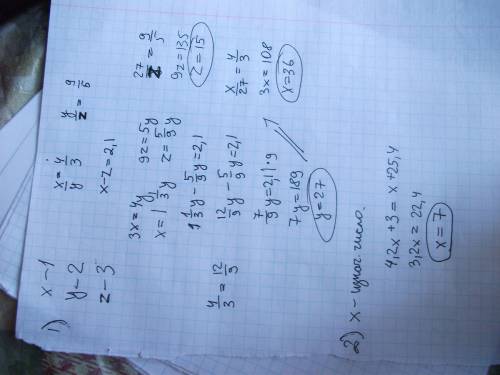 1) x - 1
y - 2
z - 3
x/y = 4/3
y/z = 9/5
x - z = 2,1
3x = 4y
9z = 5y
x = 1 1/3 y
z = 5/9 y
1 1/3 y - 5/9 y = 2,1
4/3 = 12/9
12/9 y - 5/9 y = 2,1
7/9 y = 2,1 | · 9
7y = 189
y = 27
27/z = 9/5
9z = 135
z = 15
x/27 = 4/3
3x = 108
x = 36
2) x - число.
4,2x + 3 = x + 25,4
3,2x = 22,4
x = 7